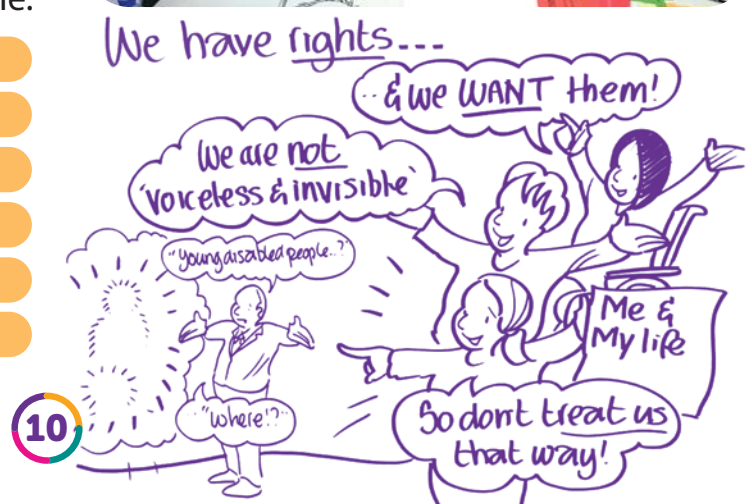 We have rights...
..& we WANT them!
We are not
'voiceless & invisible'
"young disabled people..?"
"where!?"
Me &
My life
So don't treat us
that way!
10